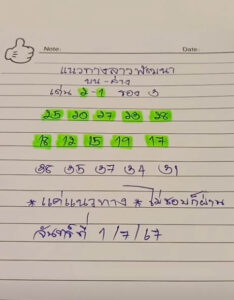 Note: Date:
แนวทางลาวพัฒนา
บน-ล่าง
เด่น 2-1 รอง 3
25 20 27 23 28
18 12 15 19 17
38 35 37 34 31
* แค่แนวทาง * ไม่ชอบก็ผ่าน
จันทร์ที่ 1/7/67